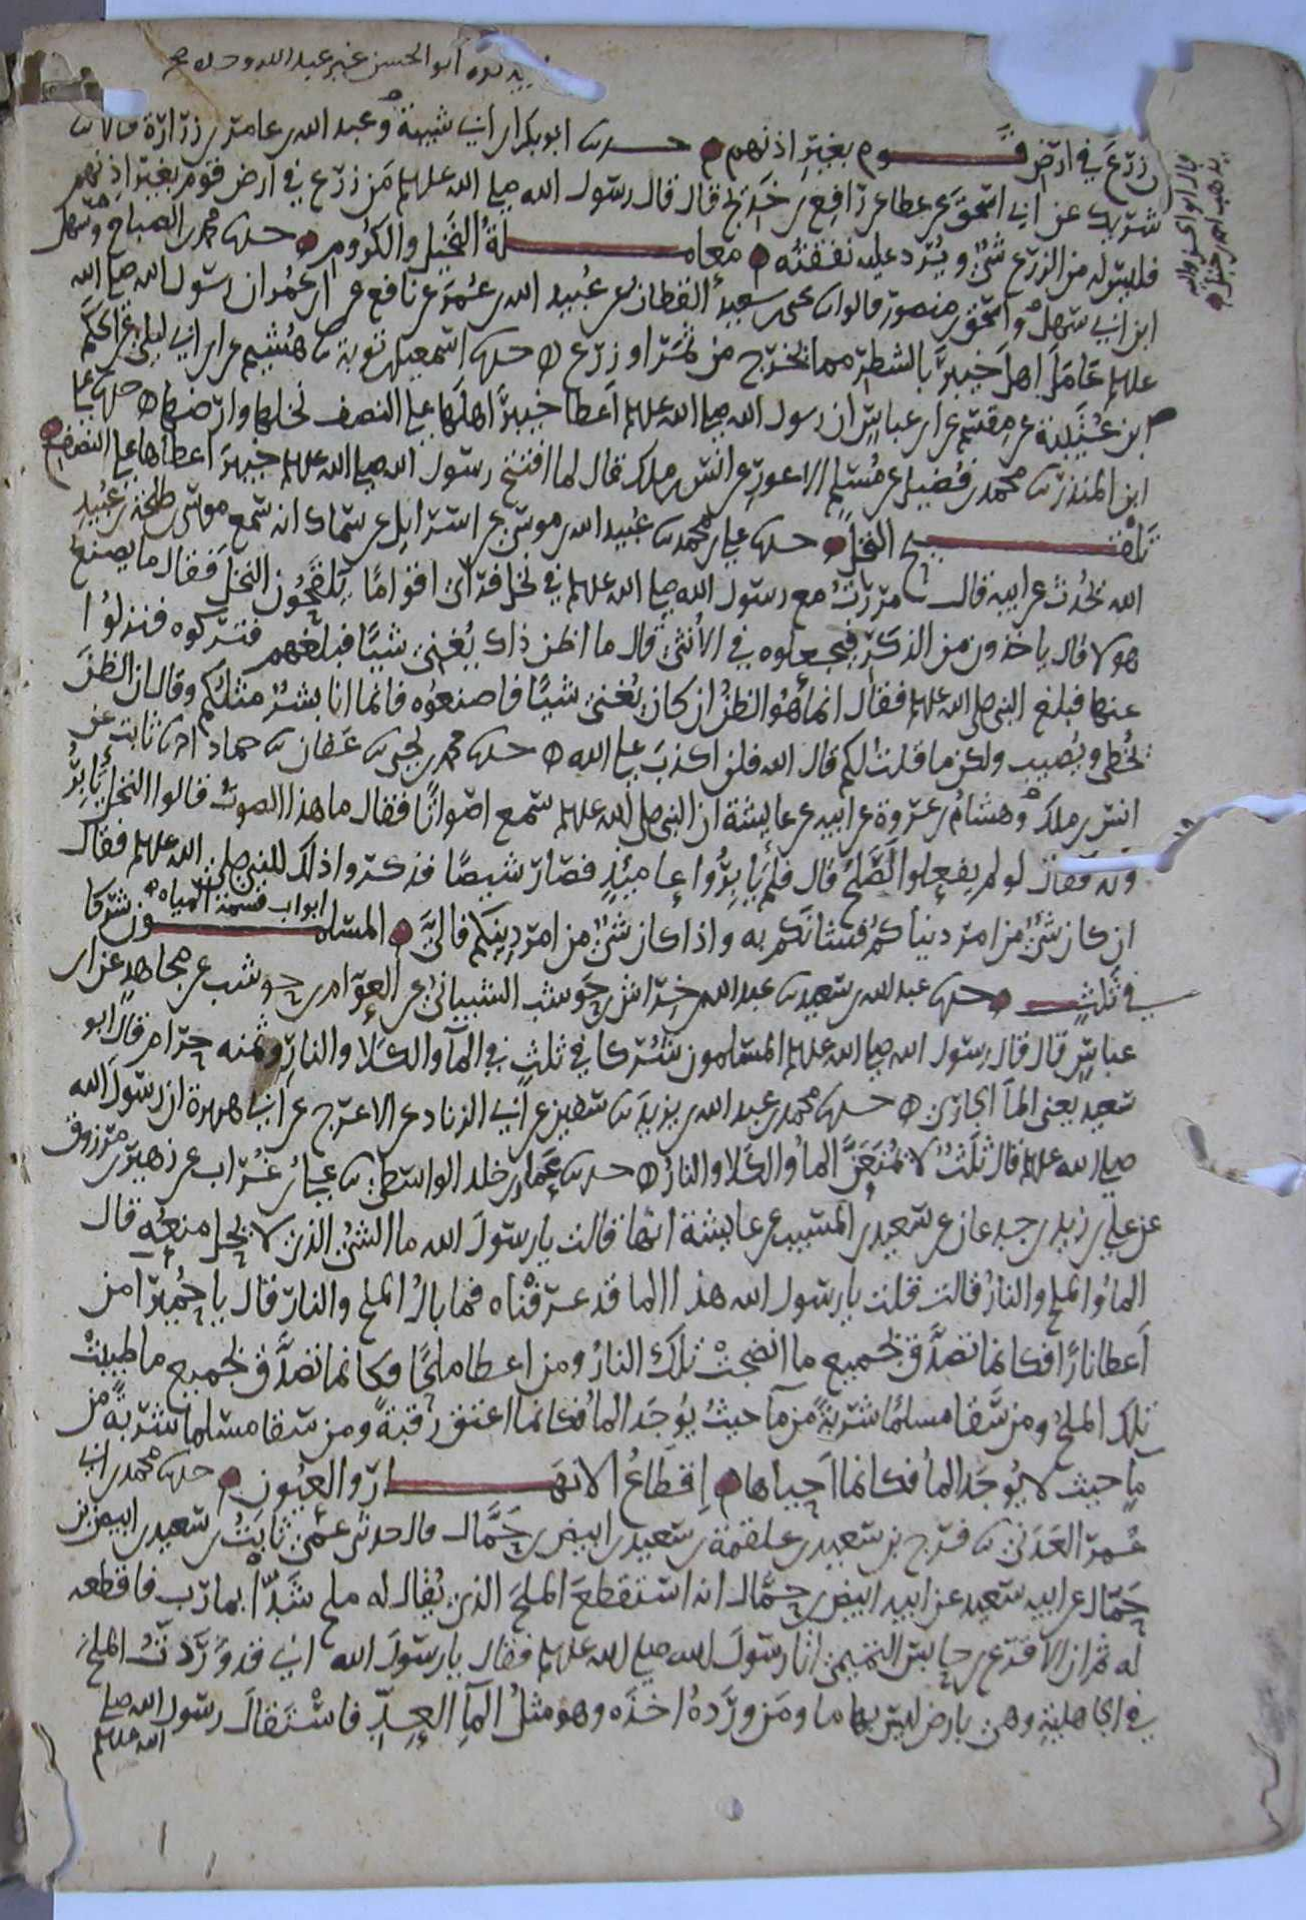 أبو الحسن عبد الله
زرع في ارض قوم بغير اذنهم حدثنا ابو بكر ابن ابي شيبة وعبد الله بن عامر بن زرارة قالا ثنا
شريك عن ابي اسحق عن عطا عن رافع بن خديج قال قال رسول الله صلى الله عليه وسلم من زرع في ارض قوم بغير اذنهم
فليس له من الزرع شئ ويرد عليه نفقته معاملة النخيل والكروم حدثنا محمد بن الصباح وسهل
ابن ابي سهل واسحق بن منصور قالوا ثنا يحيى بن سعيد القطان عن عبيد الله بن عمر عن نافع عن ابن عمر ان رسول الله صلى الله
عليه وسلم عامل اهل خيبر بالشطر مما يخرج من ثمر او زرع حدثنا اسمعيل بن توبة ثنا هشيم عن ابن ابي ليلى عن الحكم
ابن عتيبة عن مقسم عن ابن عباس ان رسول الله صلى الله عليه وسلم اعطا خيبر اهلها على النصف نخلها وارضها حدثنا علي
ابن المنذر ثنا محمد بن فضيل عن مسلم الاعور عن انس بن ملك قال لما افتتح رسول الله صلى الله عليه وسلم خيبر اعطاها على النصف
تلقيح النخل حدثنا علي بن محمد ثنا عبيد الله بن موسى عن اسرايل عن سماك انه سمع موسى بن طلحة بن عبيد
الله يحدث عن ابيه قال مررت مع رسول الله صلى الله عليه وسلم في نخل فراى اقواما يلقحون النخل فقال ما يصنع
هولا قال ياخذون من الذكر فيجعلوه في الانثى قال ما اظن ذاك يغني شيئا فبلغهم فتركوه فنزلوا
عنها فبلغ النبي صلى الله عليه وسلم فقال انما هو الظن ان كان يغني شيئا فاصنعوه فانما انا بشر مثلكم وقال ان الظن
يخطي ويصيب ولكن ما قلت لكم قال الله فلن اكذب على الله حدثنا محمد بن يحيى ثنا عفان ثنا حماد ثنا ثابت عن
انس بن ملك وهشام بن عروة عن ابيه عن عايشة ان النبي صلى الله عليه وسلم سمع اصواتا فقال ما هذا الصوت قالوا النخل يابر
ونه فقال لو لم يفعلوا لصلح قال فلم يابروا عاميذ فصار شيصا فذكروا ذلك للنبي صلى الله عليه وسلم فقال
ابواب قسمة المياه
ان كان شئ من امر دنياكم فشانكم به واذا كان شئ من امر دينكم فالي المسلمون شركا
في ثلث حدثنا عبد الله بن سعيد ثنا عبد الله بن خراش بن حوشب الشيباني عن العوام بن حوشب عن مجاهد عن ابن
عباس قال قال رسول الله صلى الله عليه وسلم المسلمون شركا في ثلث في المآ والكلا والنار وثمنه حرام قال ابو
سعيد يعني المآ الجاري حدثنا محمد بن عبد الله بن يزيد ثنا سفين عن ابي الزناد عن الاعرج عن ابي هريرة ان رسول الله
صلى الله عليه وسلم قال ثلث لا يمنعن المآ والكلا والنار حدثنا عمار بن خلد الواسطي ثنا علي بن غراب عن زهير بن مرزوق
عن علي بن زيد بن جدعان عن سعيد بن المسيب عن عايشة انها قالت يا رسول الله ما الشئ الذي لا يحل منعه قال
الما والملح والنار قالت قلت يا رسول الله هذا الما قد عرفناه فما بال الملح والنار قال يا حميرا من
اعطا نارا فكانما تصدق بجميع ما انضجت تلك النار ومن اعطا ملحا فكانما تصدق بجميع ما طيبت
تلك الملح ومن سقا مسلما شربة من مآ حيث يوجد الما فكانما اعتق رقبة ومن سقا مسلما شربة من
مآ حيث لا يوجد الما فكانما احياها اقطاع الانهار والعيون حدثنا محمد بن ابي
عمر العدني ثنا فرج بن سعيد بن علقمة بن سعيد بن ابيض بن حمال قال حدثني عمي ثابت بن سعيد بن ابيض بن
حمال عن ابيه سعيد عن ابيه ابيض بن حمال انه استقطع الملح الذي يقال له ملح شذا بمارب فاقطعه
له ثم ان الاقرع بن حابس التميمي اتا رسول الله صلى الله عليه وسلم فقال يا رسول الله اني قد وردت الملح
في الجاهلية وهي بارض ليس بها ما ومن ورده اخذه وهو مثل المآ العد فاستقال رسول الله صلى
الله عليه وسلم